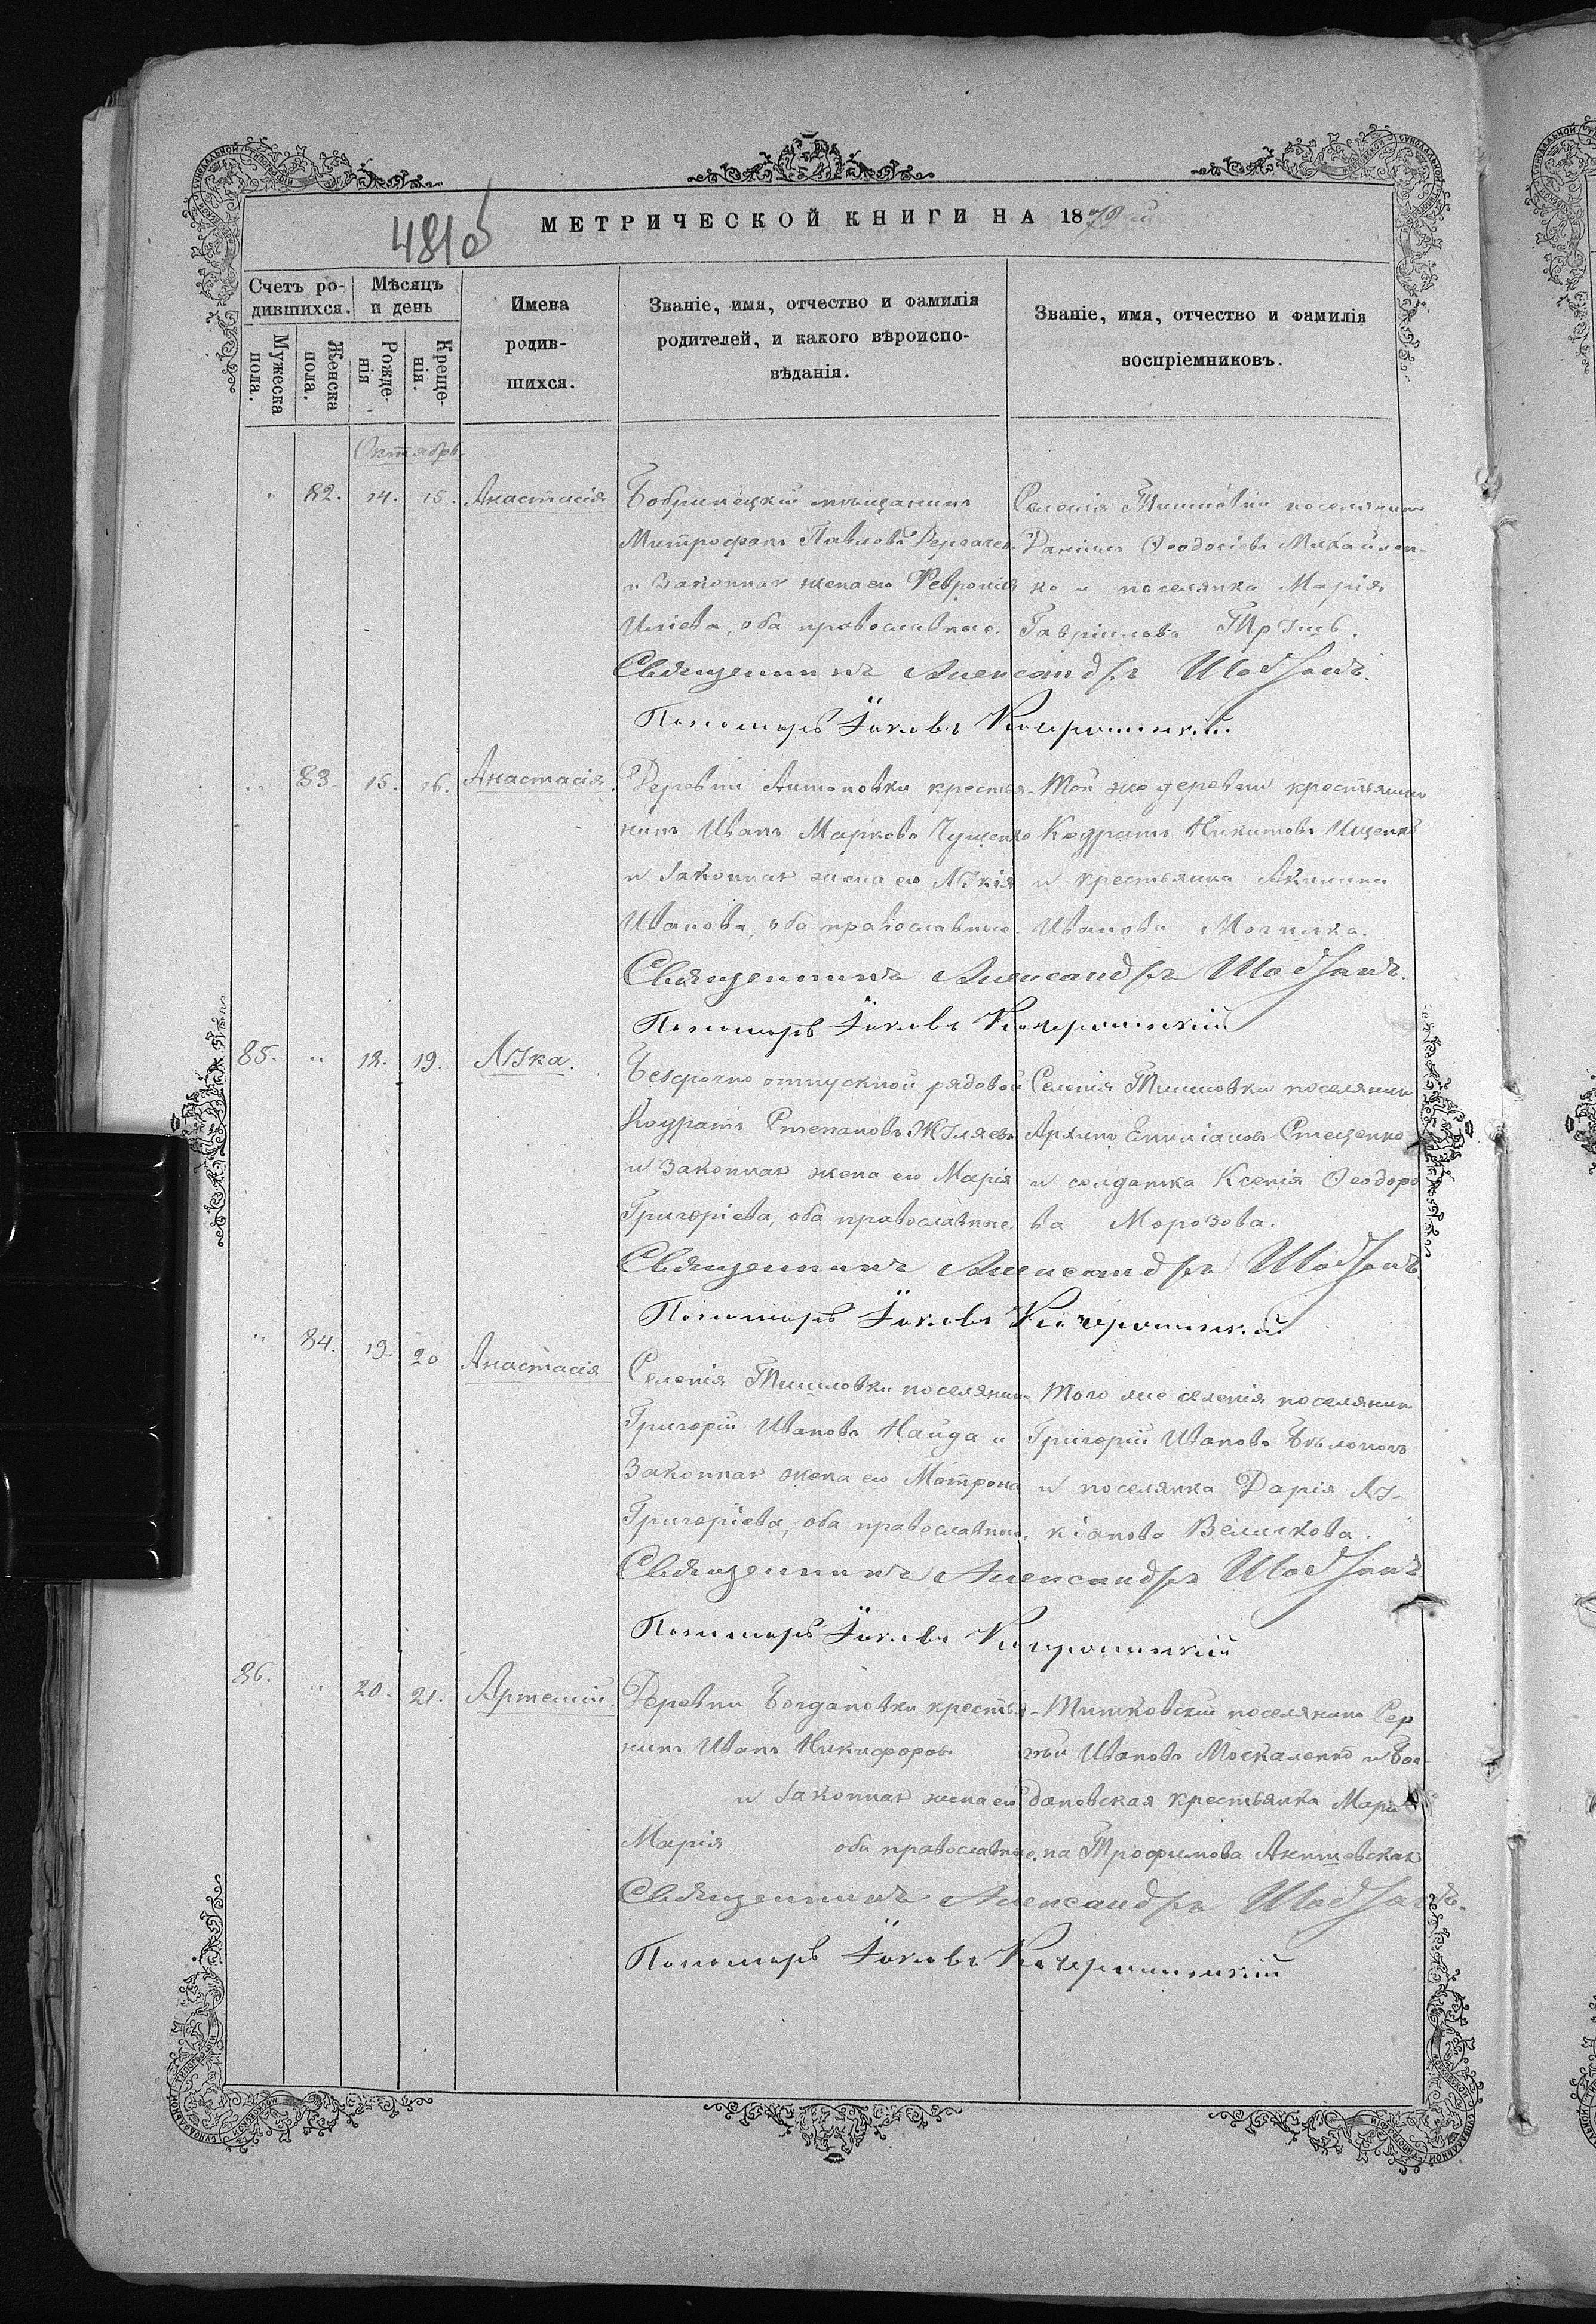 481об
МЕТРИЧЕСКОЙ КНИГИ НА 18
Счетъ ро-
дившихся.
Мѣсяцъ
и день
Мужеска
пола.
Женска
пола.
Рожде-
нія
Креще-
нія.
Имена
родив-
шихся.
Званіе, имя, отчество и фамилія
родителей, и какого вѣроиспо-
вѣданія.
Званіе, имя, отчество и фамилія
воспріемниковъ.
Октябрь
" 82. 14. 15. Анастасія
Бобринецкій мѣщанинъ
Митрофанъ Павловъ
и законная жена его Февронія
Иліева, оба православные.
Селенія поселянинъ
Даніилъ Ѳеодосіевъ Михайлен-
ко и поселянка Марія
Гавріилова
Священникъ Александръ
Пономарь Іаковъ
" 83. 15. 16. Анастасія
Деревни Антоновки крестья-
нинъ Иванъ Марковъ
и законная жена его Лукія
Иванова, оба православные.
Той же деревни крестьянинъ
Кодратъ Никитовъ Ищенко
и крестьянка Акилина
Иванова Могилка.
Священникъ Александръ
Пономарь Іаковъ
85. " 18. 19. Лука.
Безсрочно отпускной рядовой
Кодратъ Степановъ Жуляевъ
и законная жена его Марія
Григоріева, оба православные.
Селенія Тишковки поселянинъ
Архипъ Стеценко
и солдатка Ксенія Ѳеодоро
ва Морозова.
Священникъ Александръ
Пономарь Іаковъ
" 84. 19. 20 Анастасія
Селенія Тишковки поселянинъ
Григорій Ивановъ Найда и
законная жена его Мотрона
Григоріева, оба православные.
Того же селенія поселянинъ
Григорій Ивановъ
и поселянка Дарія Лу-
кіанова Великова.
Священникъ Александръ
Пономарь Іаковъ
86. " 20. 21. Артемій.
Деревни Богдановки крестья-
нинъ Иванъ Никифоровъ
и законная жена его
Марія оба православные.
Тишковскій поселянинъ Сер
гѣй Ивановъ Москаленко и Бог-
дановская крестьянка Мари
на Трофимова
Священникъ Александръ
Пономарь Іаковъ